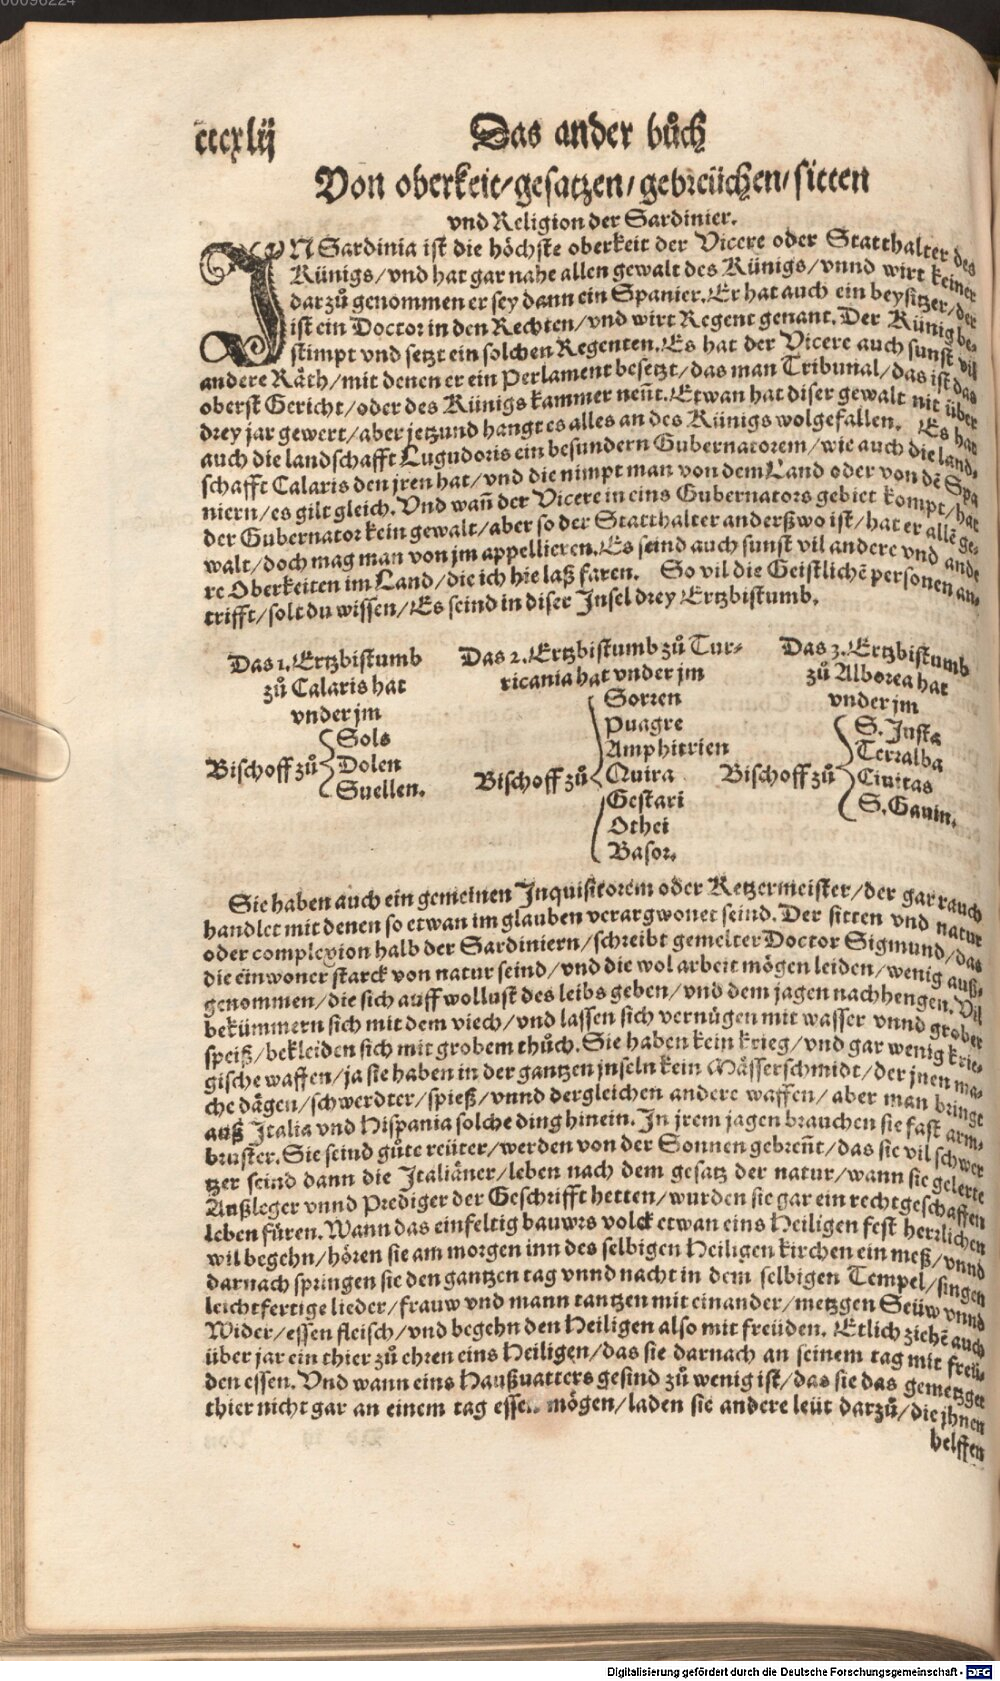 00096224
cccxlij
Das ander bůch
Von oberkeit/gesatzen/gebreüchen/sitten
vnd Religion der Sardinier.
IN Sardinia ist die höchste oberkeit der Vicere oder Statthalter des
Künigs/vnd hat gar nahe allen gewalt des Künigs/vnnd wirt keiner
darzů genommen er sey dann ein Spanier. Er hat auch ein beysitzer/der
ist ein Doctor in den Rechten/vnd wirt Regent genant. Der Künig be-
stimpt vnd setzt ein solchen Regenten. Es hat der Vicere auch sunst vil
andere Räth/mit denen er ein Perlament besetzt/das man Tribunal/das ist das
oberst Gericht/oder des Künigs kammer neñt. Etwan hat diser gewalt nit über
drey jar gewert/aber jetzund hangt es alles an des Künigs wolgefallen. Es hat
auch die landschafft Lugudoris ein besundern Gubernatorem/wie auch die land-
schafft Calaris den jren hat/vnd die nimpt man von dem Land oder von dē Spa
niern/es gilt gleich. Vnd wañ der Vicere in eins Gubernators gebiet kompt/hat
der Gubernator kein gewalt/aber so der Statthalter anderßwo ist/hat er allē ge-
walt/doch mag man von jm appellieren. Es seind auch sunst vil andere vnd ande
re Oberkeiten im Land/die ich hie laß faren. So vil die Geistlichē personen an-
trifft/solt du wissen/Es seind in diser Insel drey Ertzbistumb.
Das 1. Ertzbistumb
zů Calaris hat
vnder jm
Bischoff zů
Sols
Dolen
Suellen.
Das 2. Ertzbistumb zů Tur-
ricania hat vnder jm
Bischoff zů
Sorren
Puagre
Amphitrien
Quira
Gestari
Othei
Basor.
Das 3. Ertzbistumb
zů Alborea hat
vnder jm
Bischoff zů
S. Justa
Terralba
Ciuitas
S. Gauin.
Sie haben auch ein gemeinen Inquisitorem oder Ketzermeister/der gar rauch
handlet mit denen so etwan im glauben verargwonet seind. Der sitten vnd natur
oder complexion halb der Sardiniern/schreibt gemelter Doctor Sigmund/das
die einwoner starck von natur seind/vnd die wol arbeit mögen leiden/wenig auß-
genommen/die sich auff wollust des leibs geben/vnd dem jagen nachhengen. Vil
bekümmern sich mit dem viech/vnd lassen sich vernügen mit wasser vnnd grober
speiß/bekleiden sich mit grobem thůch. Sie haben kein krieg/vnd gar wenig krie-
gische waffen/ja sie haben in der gantzen jnseln kein Mässerschmidt/der jnen ma-
che dägen/schwerdter/spieß/vnnd dergleichen andere waffen/aber man bringt
auß Italia vnd Hispania solche ding hinein. In jrem jagen brauchen sie fast arm-
bruster. Sie seind gůte reüter/werden von der Sonnen gebreñt/das sie vil schwer
tzer seind dann die Italiäner/leben nach dem gesatz der natur/wann sie gelerte
Außleger vnnd Prediger der Geschrifft hetten/wurden sie gar ein rechtgeschaffen
leben füren. Wann das einfeltig bauwrs volck etwan eins Heiligen fest herrlichen
wil begehn/hören sie am morgen inn des selbigen Heiligen kirchen ein meß/vnnd
darnach springen sie den gantzen tag vnnd nacht in dem selbigen Tempel/singen
leichtfertige lieder/frauw vnd mann tantzen mit einander/metzgen Seüw vnnd
Wider/essen fleisch/vnd begehn den Heiligen also mit freüden. Etlich ziehē auch
über jar ein thier zů ehren eins Heiligen/das sie darnach an seinem tag mit freü-
den essen. Vnd wann eins Haußuatters gesind zů wenig ist/das sie das gemetzget
thier nicht gar an einem tag essen mögen/laden sie andere leüt darzů/die jhnen
helffen
Digitalisierung gefördert durch die Deutsche Forschungsgemeinschaft - DFG